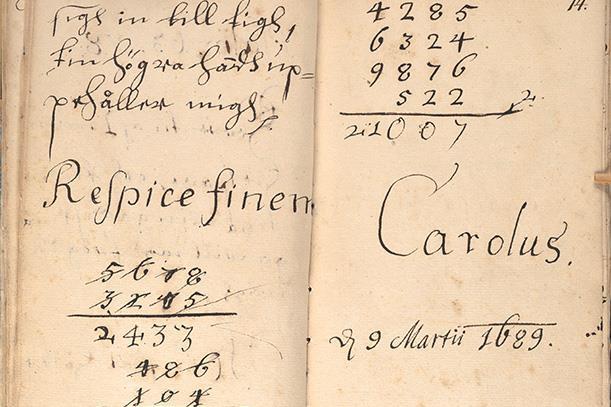 sigh in till tigh,
tin högra hådh up=
pehåller migh.
Respice finem
5678
3245
2433
486
14.
4285
6324
9876
522
21007
Carolus.
d 9 Martii 1689.